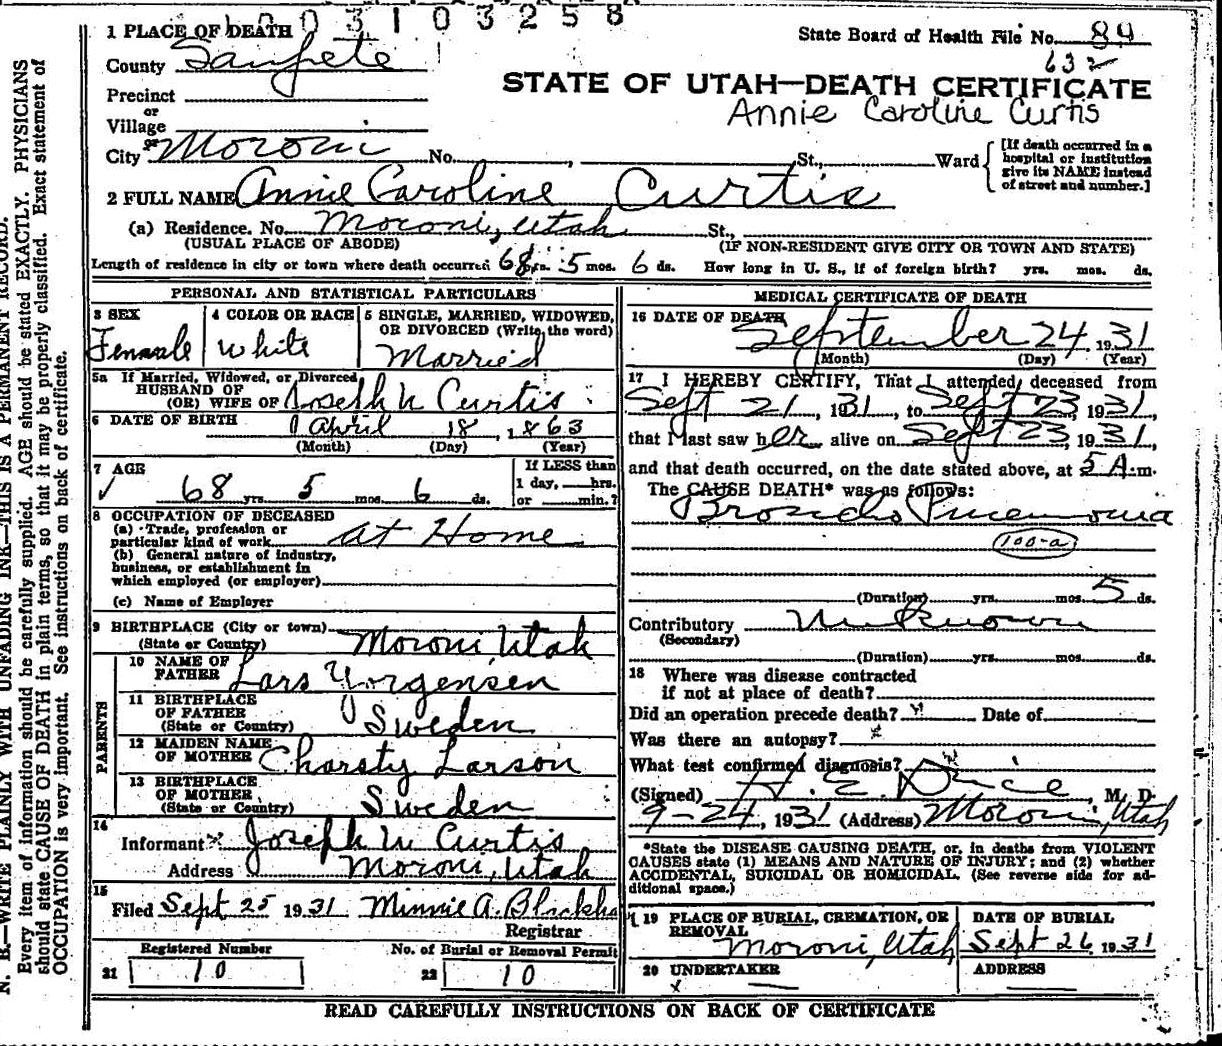 003103258
1 PLACE OF DEATH
State Board of Health File No. 84
County Sanpete
632
STATE OF UTAH—DEATH CERTIFICATE
Precinct
or
Annie Caroline Curtis
Village
or
City Moroni No. , St., Ward
[If death occurred in a hospital or institution give its NAME instead of street and number.]
2 FULL NAME Annie Caroline Curtis
(a) Residence. No. Moroni, Utah St.,
(USUAL PLACE OF ABODE) (IF NON-RESIDENT GIVE CITY OR TOWN AND STATE)
Length of residence in city or town where death occurred 68 yrs. 5 mos. 6 ds. How long in U. S., if of foreign birth? yrs. mos. ds.
PERSONAL AND STATISTICAL PARTICULARS
3 SEX Female
4 COLOR OR RACE White
5 SINGLE, MARRIED, WIDOWED,
OR DIVORCED (Write the word)
Married
5a If Married, Widowed, or Divorced
HUSBAND OF
(OR) WIFE OF Joseph W Curtis
6 DATE OF BIRTH April 18, 1863
(Month) (Day) (Year)
7 AGE
68 yrs. 5 mos. 6 ds.
If LESS than
1 day, hrs.
or min.?
8 OCCUPATION OF DECEASED
(a) Trade, profession or
particular kind of work At Home
(b) General nature of industry,
business, or establishment in
which employed (or employer)
(c) Name of Employer
9 BIRTHPLACE (City or town)
(State or Country) Moroni, Utah
PARENTS
10 NAME OF
FATHER Lars Yorgensen
11 BIRTHPLACE
OF FATHER
(State or Country) Sweden
12 MAIDEN NAME
OF MOTHER Charsty Larson
13 BIRTHPLACE
OF MOTHER
(State or Country) Sweden
14
Informant Joseph W Curtis
Address Moroni, Utah
15
Filed Sept 25 1931 Minnie A.
Registrar
Registered Number
21 10
No. of Burial or Removal Permit
22 10
MEDICAL CERTIFICATE OF DEATH
16 DATE OF DEATH
September 24, 1931
(Month) (Day) (Year)
17 I HEREBY CERTIFY, That I attended deceased from
Sept 21, 1931, to Sept 23, 1931,
that I last saw her alive on Sept 23, 1931,
and that death occurred, on the date stated above, at 5 A.m.
The CAUSE DEATH* was as follows:
Broncho Pneumonia
100-a
(Duration) yrs. mos. 5 ds.
Contributory Unknown
(Secondary)
(Duration) yrs. mos. ds.
18 Where was disease contracted
if not at place of death?
Did an operation precede death? Date of
Was there an autopsy?
What test confirmed diagnosis?
(Signed) H. E. Dice, M. D.
9-24, 1931 (Address) Moroni, Utah
*State the DISEASE CAUSING DEATH, or, in deaths from VIOLENT
CAUSES state (1) MEANS AND NATURE OF INJURY; and (2) whether
ACCIDENTAL, SUICIDAL OR HOMICIDAL. (See reverse side for ad-
ditional space.)
19 PLACE OF BURIAL, CREMATION, OR
REMOVAL
Moroni, Utah
DATE OF BURIAL
Sept 26 1931
20 UNDERTAKER
ADDRESS
READ CAREFULLY INSTRUCTIONS ON BACK OF CERTIFICATE
N. B.—WRITE PLAINLY WITH UNFADING INK—THIS IS A PERMANENT RECORD.
Every item of information should be carefully supplied. AGE should be stated EXACTLY. PHYSICIANS
should state CAUSE OF DEATH in plain terms, so that it may be properly classified. Exact statement of
OCCUPATION is very important. See instructions on back of certificate.